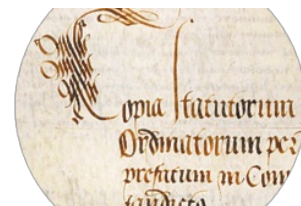 Copia statutorum
Ordinatorum per
prefatum in Com